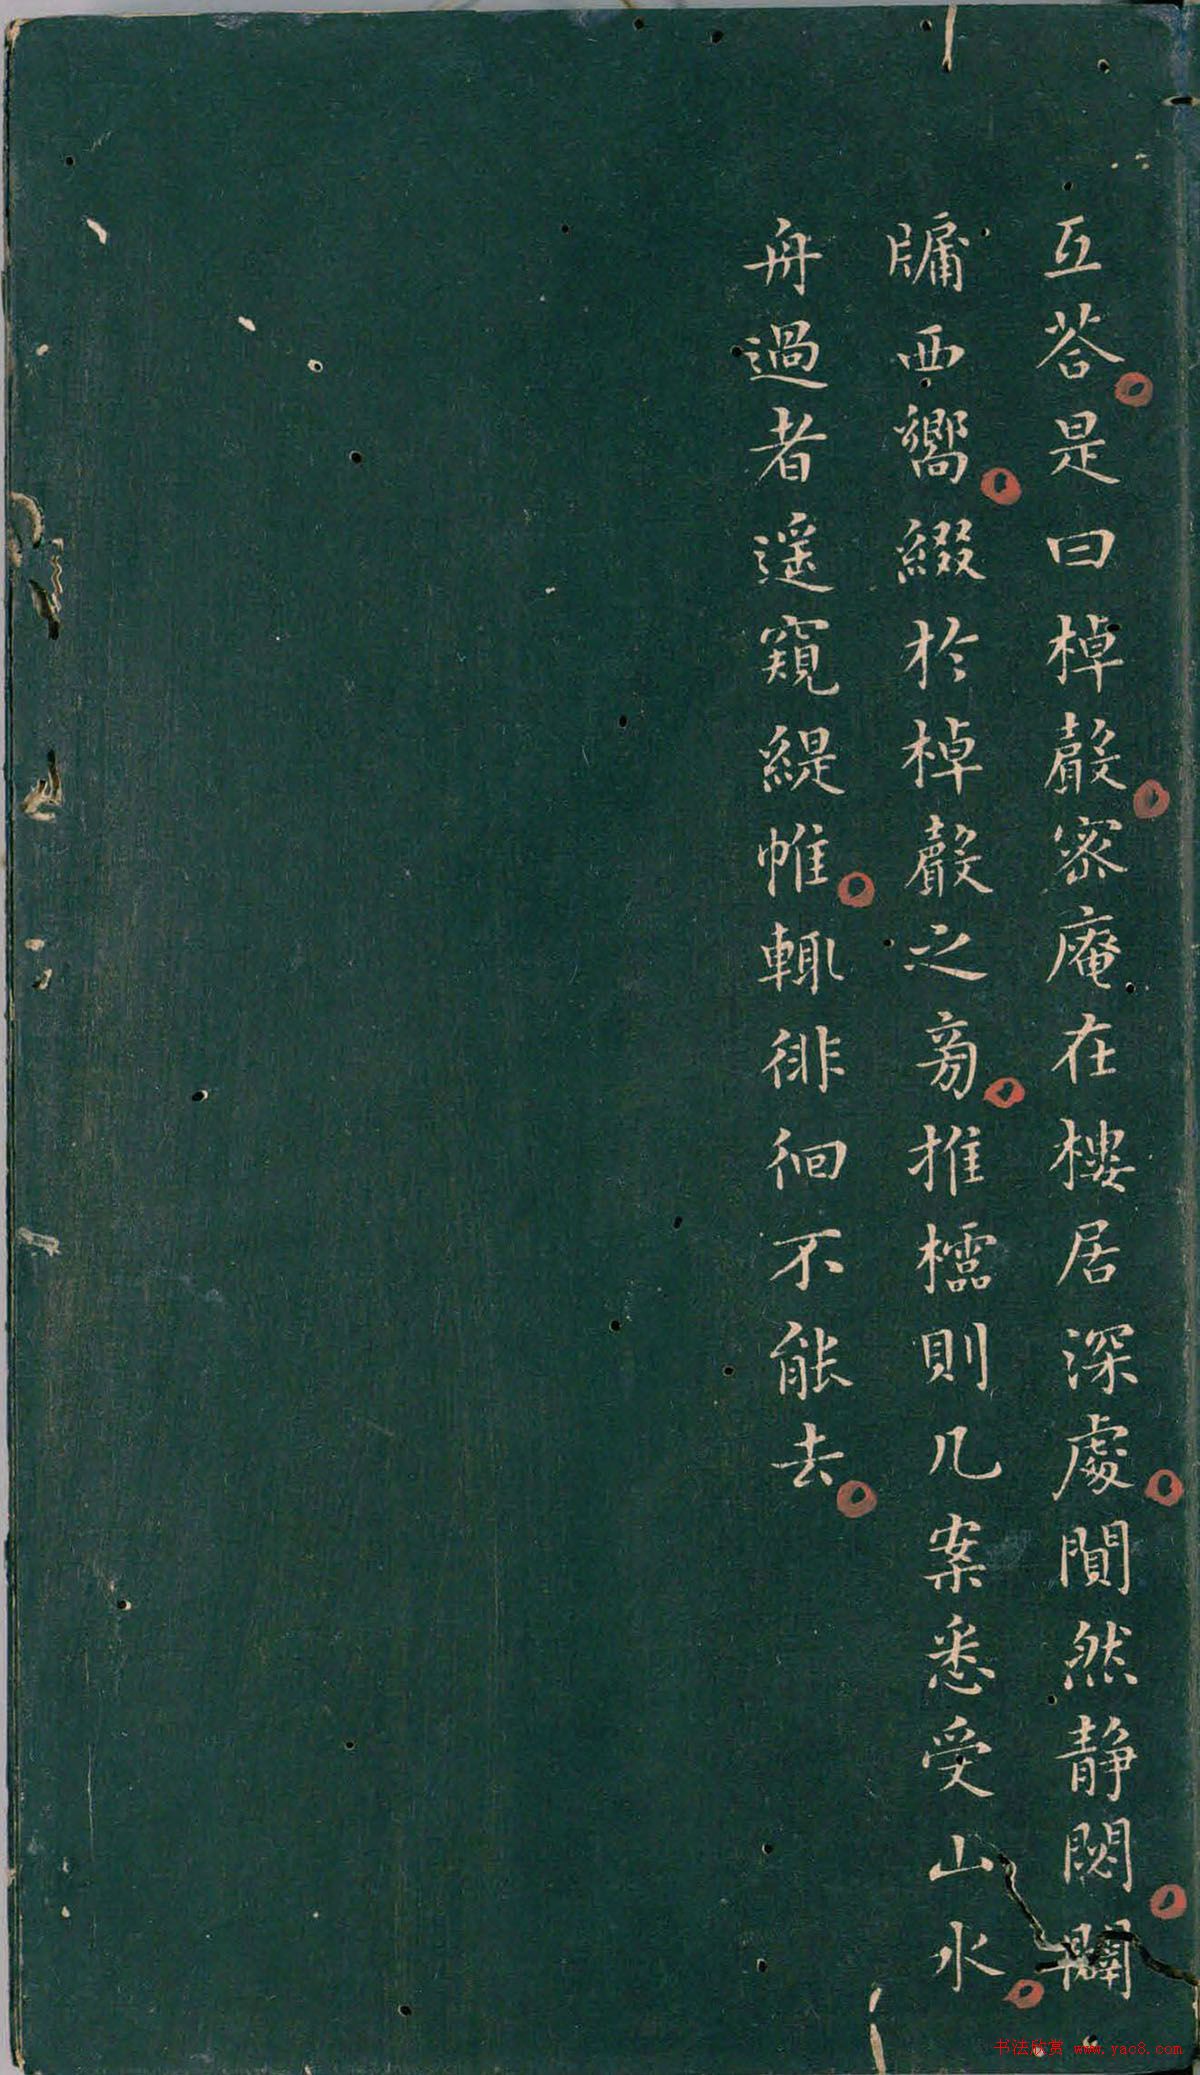 互荅是曰棹聲密庵在樓居深處閴然静閟闢
牖西嚮綴於棹聲之旁推櫺則几案悉受山水
舟過者遥窺緹帷輙徘徊不能去
书法欣赏 www.yac8.com